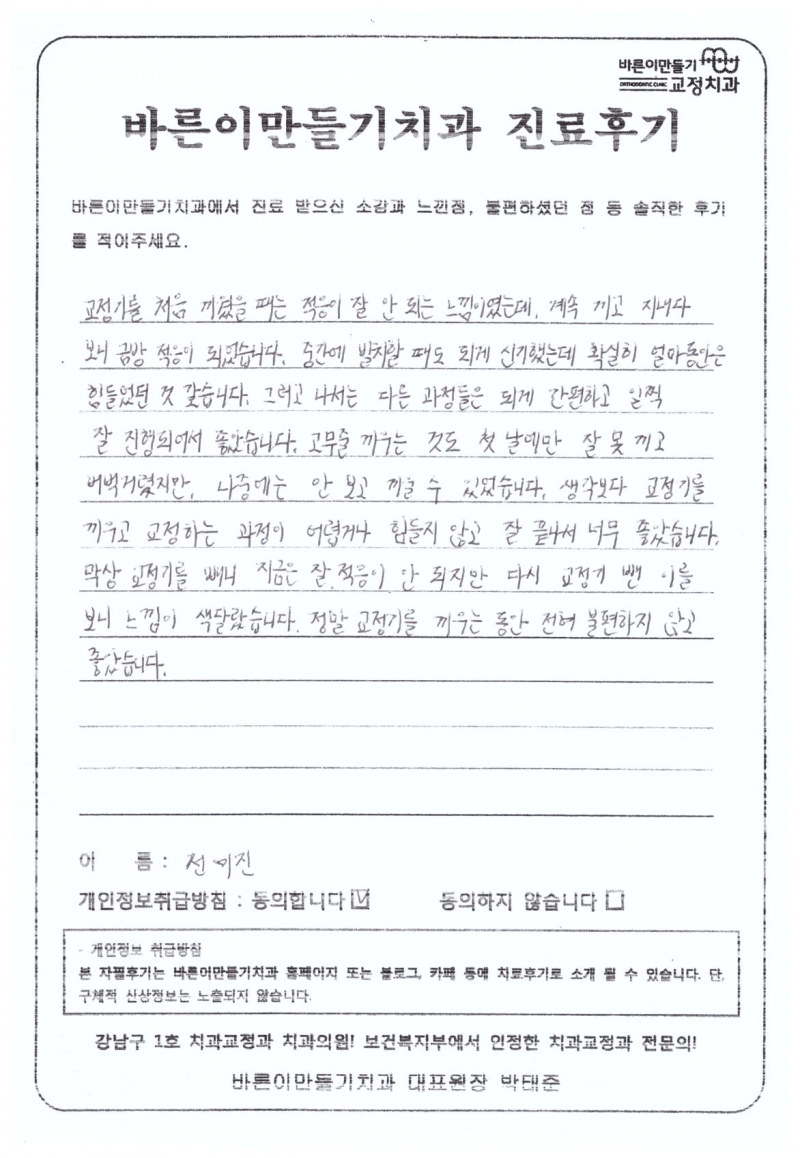 바른이만들기
ORTHODONTIC CLINIC 교정치과
바른이만들기치과 진료후기
바른이만들기치과에서 진료 받으신 소감과 느낀점, 불편하셨던 점 등 솔직한 후기
를 적어주세요.
교정기를 처음 끼웠을 때는 적응이 잘 안 되는 느낌이였는데, 계속 끼고 지내다
보니 금방 적응이 되었습니다. 중간에 발치할 때도 되게 신기했는데 확실히 얼마동안은
힘들었던 것 같습니다. 그러고 나서는 다른 과정들은 되게 간편하고 일찍
잘 진행되어서 좋았습니다. 고무줄 끼우는 것도 첫 날에만 잘 못 끼고
버벅거렸지만, 나중에는 안 보고 끼울 수 있었습니다. 생각보다 교정기를
끼우고 교정하는 과정이 어렵거나 힘들지 않고 잘 끝나서 너무 좋았습니다.
막상 교정기를 빼니 지금은 잘 적응이 안 되지만 다시 교정기 뺀 이를
보니 느낌이 색달랐습니다. 정말 교정기를 끼우는 동안 전혀 불편하지 않고
좋았습니다.
이 름 : 전미진
개인정보취급방침 : 동의합니다 ☑ 동의하지 않습니다 ☐
- 개인정보 취급방침
본 자필후기는 바른이만들기치과 홈페이지 또는 블로그, 카페 등에 치료후기로 소개 될 수 있습니다. 단,
구체적 신상정보는 노출되지 않습니다.
강남구 1호 치과교정과 치과의원! 보건복지부에서 인정한 치과교정과 전문의!
바른이만들기치과 대표원장 박태준